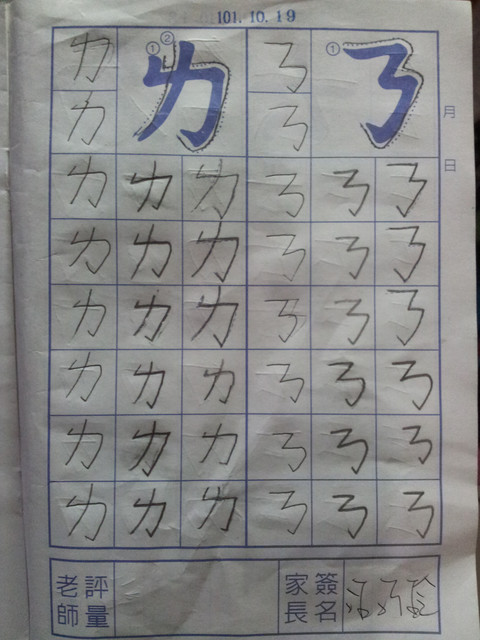 101.10.19
ㄌ ①② ㄌ ㄋ ① ㄋ
ㄌ ㄋ
月
日
ㄌ ㄌ ㄌ ㄋ ㄋ ㄋ
ㄌ ㄌ ㄌ ㄋ ㄋ ㄋ
ㄌ ㄌ ㄌ ㄋ ㄋ ㄋ
ㄌ ㄌ ㄌ ㄋ ㄋ ㄋ
ㄌ ㄌ ㄌ ㄋ ㄋ ㄋ
ㄌ ㄌ ㄌ ㄋ ㄋ ㄋ
老師
評量
家長
簽名